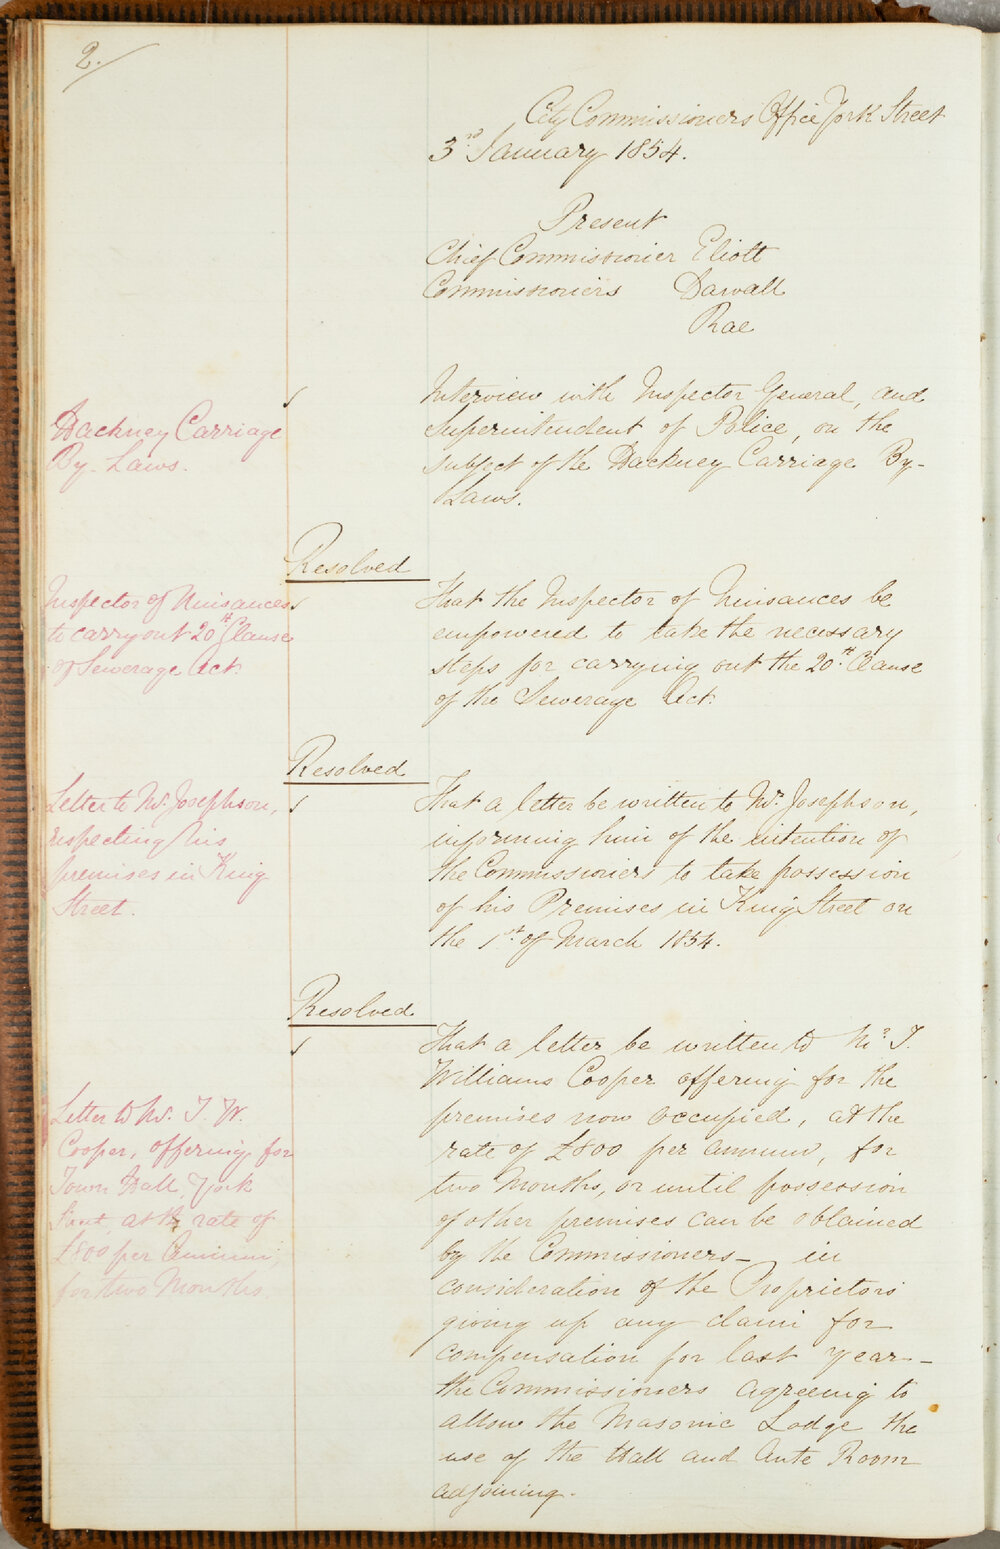 2.
City Commissioners Office York Street
3rd January 1854.
Present
Chief Commissioner Eliott
Commissioners Darvall
Rae
Hackney Carriage
By-Laws.
Interview with Inspector General, and
Superintendent of Police, on the
subject of the Hackney Carriage By-
Laws.
Resolved
Inspector of Nuisances
to carry out 20th Clause
of Sewerage Act.
That the Inspector of Nuisances be
empowered to take the necessary
steps for carrying out the 20th Clause
of the Sewerage Act.
Resolved
Letter to Mr. Josephson,
respecting his
premises in King
Street.
That a letter be written to Mr. Josephson,
informing him of the intention of
the Commissioners to take possession
of his Premises in King Street on
the 1st of March 1854.
Resolved
Letter to Mr. T. W.
Cooper, offering for
Town Hall, York
Street, at the rate of
£800 per Annum,
for two Months.
That a letter be written to Mr. T.
Williams Cooper offering for the
premises now occupied, at the
rate of £800 per annum, for
two Months, or until possession
of other premises can be obtained
by the Commissioners – in
consideration of the Proprietors
giving up any claim for
compensation for last year –
the Commissioners agreeing to
allow the Masonic Lodge the
use of the Hall and Ante Room
adjoining.